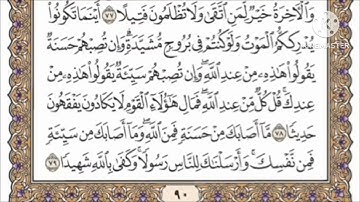 وَالْآخِرَةُ خَيْرٌ لِّمَنِ اتَّقَىٰ وَلَا تُظْلَمُونَ فَتِيلًا ٧٧ أَيْنَمَا تَكُونُوا
يُدْرِككُّمُ الْمَوْتُ وَلَوْ كُنتُمْ فِي بُرُوجٍ مُّشَيَّدَةٍ ۗ وَإِن تُصِبْهُمْ حَسَنَةٌ
يَقُولُوا هَٰذِهِ مِنْ عِندِ اللَّهِ ۖ وَإِن تُصِبْهُمْ سَيِّئَةٌ يَقُولُوا هَٰذِهِ مِنْ
عِندِكَ ۚ قُلْ كُلٌّ مِّنْ عِندِ اللَّهِ ۖ فَمَالِ هَٰؤُلَاءِ الْقَوْمِ لَا يَكَادُونَ يَفْقَهُونَ
حَدِيثًا ٧٨ مَّا أَصَابَكَ مِنْ حَسَنَةٍ فَمِنَ اللَّهِ ۖ وَمَا أَصَابَكَ مِن سَيِّئَةٍ
فَمِن نَّفْسِكَ ۚ وَأَرْسَلْنَاكَ لِلنَّاسِ رَسُولًا ۚ وَكَفَىٰ بِاللَّهِ شَهِيدًا ٧٩
٩٠